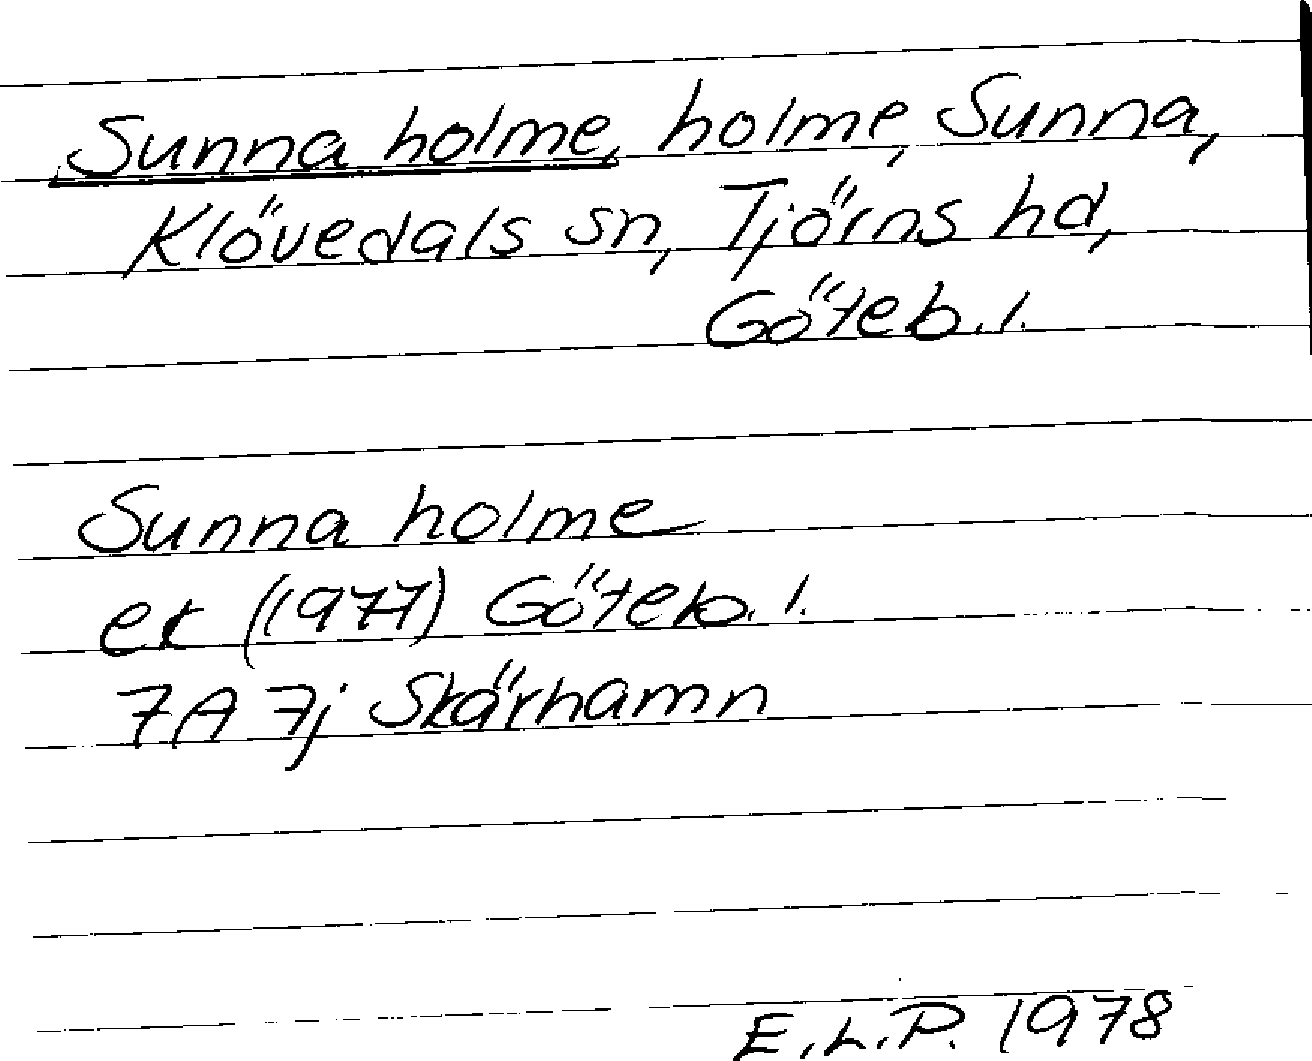 Sunna holme, holme, Sunna,
Klövedals sn, Tjörns hd,
Göteb. l.
Sunna holme
ek (1977) Göteb. l.
7A 7j Skärhamn
E.L.P. 1978